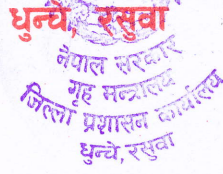 धुन्चे, रसुवा
नेपाल सरकार
गृह मन्त्रालय
जिल्ला प्रशासन कार्यालय
धुन्चे, रसुवा